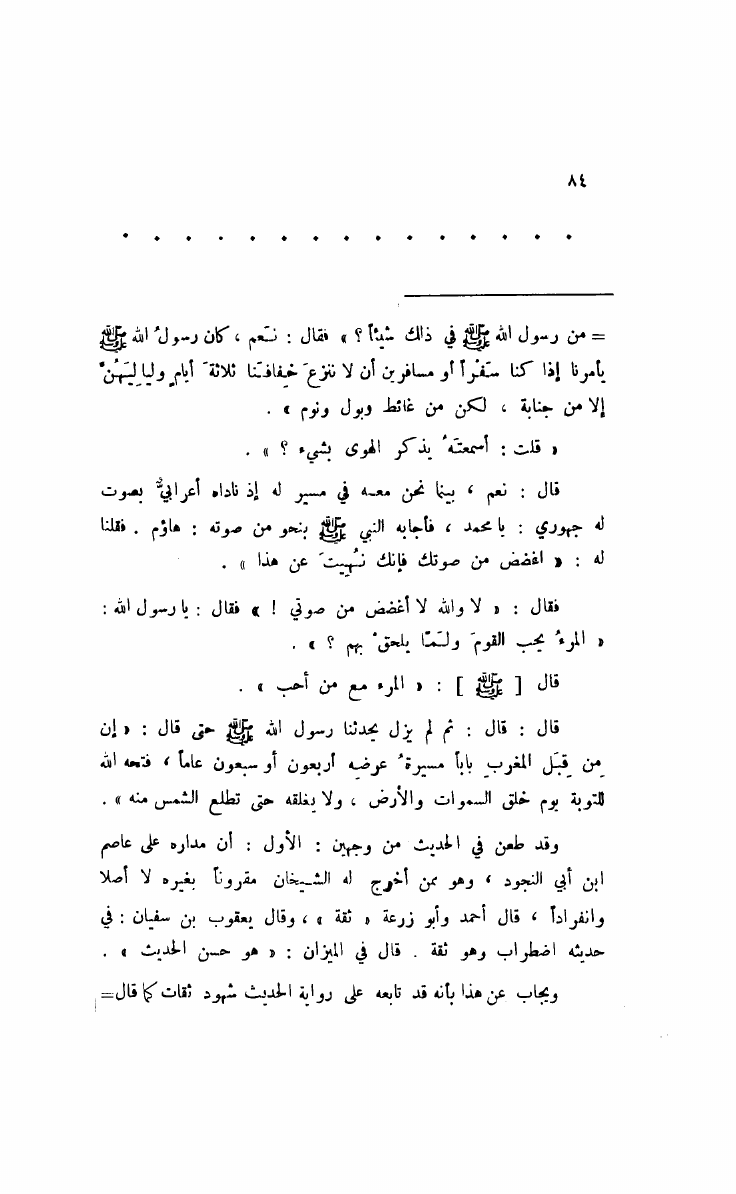 ٨٤
. . . . . . . . . . . . . . .
= من رسول الله ﷺ في ذلك شيئاً ؟ » فقال : نَعم ، كان رسولُ الله ﷺ
يأمرنا إذا كنا سَفْراً أو مسافرين أن لا ننزعَ خِفافَنا ثلاثةَ أيامٍ ولياليَهُنَّ
إلا من جنابة ، لكن من غائط وبول ونوم » .
« قلت : أسمعتَهُ يذكر الهوى بشيء ؟ » .
قال : نعم ، بينما نحن معه في مسير له إذ ناداه أعرابيٌّ بصوت
له جهوري : يا محمد ، فأجابه النبي ﷺ بنحو من صوته : هاؤم . فقلنا
له : « اغضض من صوتك فإنك نُهِيتَ عن هذا » .
فقال : « لا والله لا أغضض من صوتي ! » فقال : يا رسول الله :
« المرءُ يحب القومَ ولَمّا يلحقْ بهم ؟ » .
قال [ ﷺ ] : « المرء مع من أحب » .
قال : قال : ثم لم يزل يحدثنا رسول الله ﷺ حتى قال : « إن
مِن قِبَلِ المغربِ باباً مسيرةُ عرضه أربعون أو سبعون عاماً ، فتحه الله
للتوبة يوم خلق السموات والأرض ، ولا يغلقه حتى تطلع الشمس منه » .
وقد طعن في الحديث من وجهين : الأول : أن مداره على عاصم
ابن أبي النجود ، وهو ممن أخرج له الشيخان مقروناً بغيره لا أصلا
وانفراداً ، قال أحمد وأبو زرعة « ثقة » ، وقال يعقوب بن سفيان : في
حديثه اضطراب وهو ثقة . قال في الميزان : « هو حسن الحديث » .
ويجاب عن هذا بأنه قد تابعه على رواية الحديث شهود ثقات كما قال=